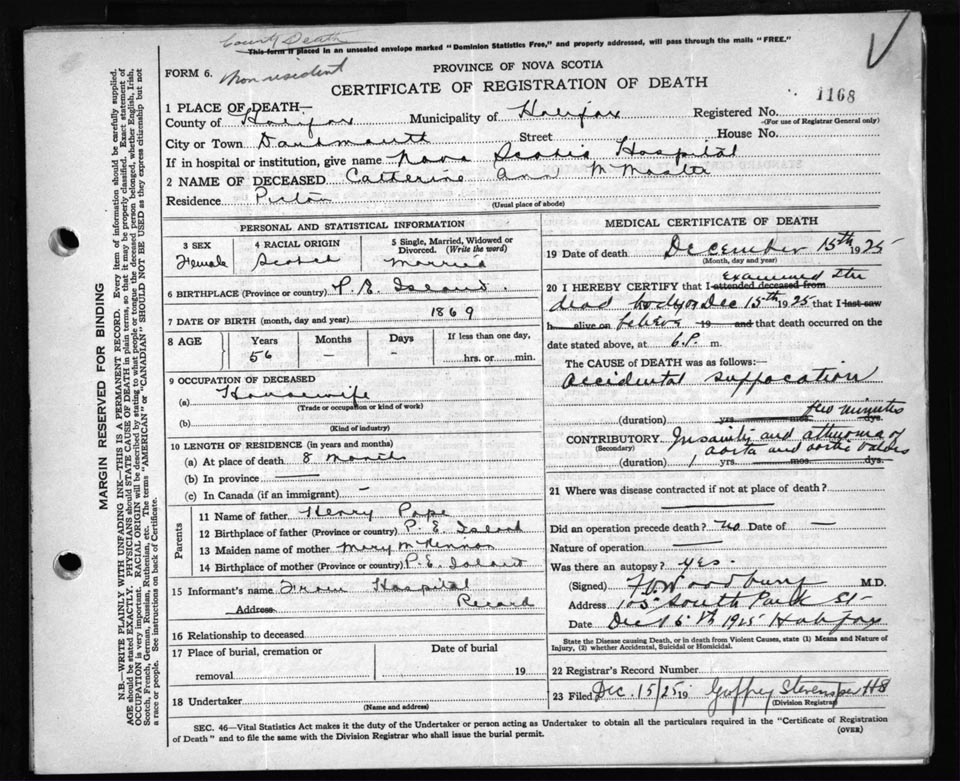 County Death
This form if placed in an unsealed envelope marked "Dominion Statistics Free," and properly addressed, will pass through the mails "FREE."
FORM 6. Non resident
PROVINCE OF NOVA SCOTIA
CERTIFICATE OF REGISTRATION OF DEATH
1168
1 PLACE OF DEATH—
County of Halifax Municipality of Halifax Registered No.
(For use of Registrar General only)
City or Town Dartmouth Street House No.
If in hospital or institution, give name Nova Scotia Hospital
2 NAME OF DECEASED Catherine Ann McMaster
Residence Pictou
(Usual place of abode)
PERSONAL AND STATISTICAL INFORMATION
3 SEX 4 RACIAL ORIGIN 5 Single, Married, Widowed or Divorced. (Write the word)
Female Scotch Married
6 BIRTHPLACE (Province or country) P. E. Island.
7 DATE OF BIRTH (month, day and year) 1869
8 AGE Years Months Days If less than one day,
56 – – hrs. or min.
9 OCCUPATION OF DECEASED
(a) Housewife
(Trade or occupation or kind of work)
(b)
(Kind of industry)
10 LENGTH OF RESIDENCE (in years and months)
(a) At place of death 8 months
(b) In province —
(c) In Canada (if an immigrant) –
Parents
11 Name of father Henry Pope
12 Birthplace of father (Province or country) P. E. Island
13 Maiden name of mother Mary McKinnon
14 Birthplace of mother (Province or country) P. E. Island
15 Informant's name From Hospital
Address Record
16 Relationship to deceased
17 Place of burial, cremation or removal Date of burial
19
18 Undertaker
(Name and address)
MEDICAL CERTIFICATE OF DEATH
19 Date of death December 15th 1925
(Month, day and year)
examined the
20 I HEREBY CERTIFY that I attended deceased from
dead body on Dec 15th 1925 that I last saw
h alive on believe 19 and that death occurred on
date stated above, at 6 P. m.
The CAUSE of DEATH was as follows:—
Accidental suffocation
few minutes
(duration) yrs. mos. dys.
CONTRIBUTORY Insanity and atheroma of
(Secondary) aorta and aortic valves
(duration) 1 yrs. mos. dys.
21 Where was disease contracted if not at place of death?
Did an operation precede death? No Date of —
Nature of operation —
Was there an autopsy? yes.
(Signed) Woodbury M.D.
Address 105 South Park St
Date Dec 16th 1925 Halifax
State the Disease causing Death, or in death from Violent Causes, state (1) Means and Nature of Injury, (2) whether Accidental, Suicidal or Homicidal.
22 Registrar's Record Number
23 Filed Dec. 15/25 19 Geoffrey Stevens per HS
(Division Registrar)
SEC. 46—Vital Statistics Act makes it the duty of the Undertaker or person acting as Undertaker to obtain all the particulars required in the "Certificate of Registration
of Death" and to file the same with the Division Registrar who shall issue the burial permit.
(OVER)
MARGIN RESERVED FOR BINDING
N.B.—WRITE PLAINLY WITH UNFADING INK—THIS IS A PERMANENT RECORD. Every item of information should be carefully supplied.
AGE should be stated EXACTLY. PHYSICIANS should STATE CAUSE OF DEATH in plain terms, so that it may be properly classified. Exact statement of
OCCUPATION is very important. RACIAL ORIGIN will be described by stating to what people or tongue the deceased person belonged, whether English, Irish,
Scotch, French, German, Russian, Ruthenian, etc. The terms "AMERICAN" or "CANADIAN" SHOULD NOT BE USED as they express citizenship but not
a race or people. See instructions on back of Certificate.